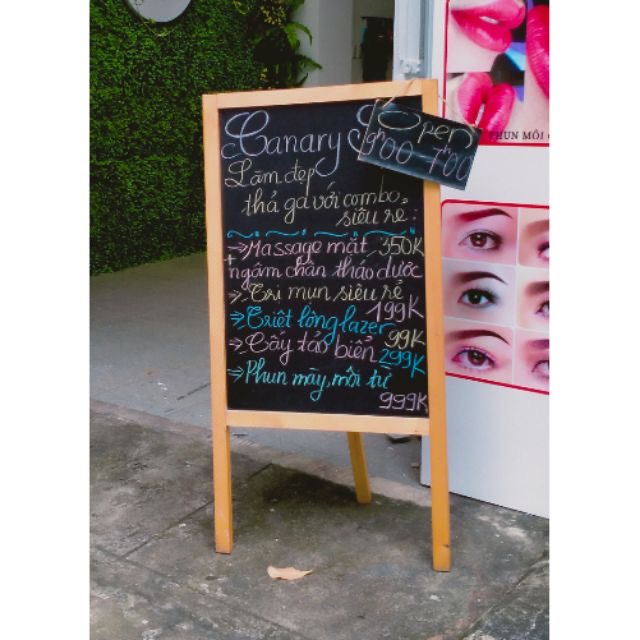 Canary S
Open
9h00 - 7h00
Làm đẹp
thả ga với combo
siêu rẻ :
=> Massage mặt 350K
+ ngâm chân thảo dược
=> Trị mụn siêu rẻ
199K
=> Triệt lông lazer
99K
=> Cấy tảo biển 299K
=> Phun mày, môi từ
999K
PHUN MÔI